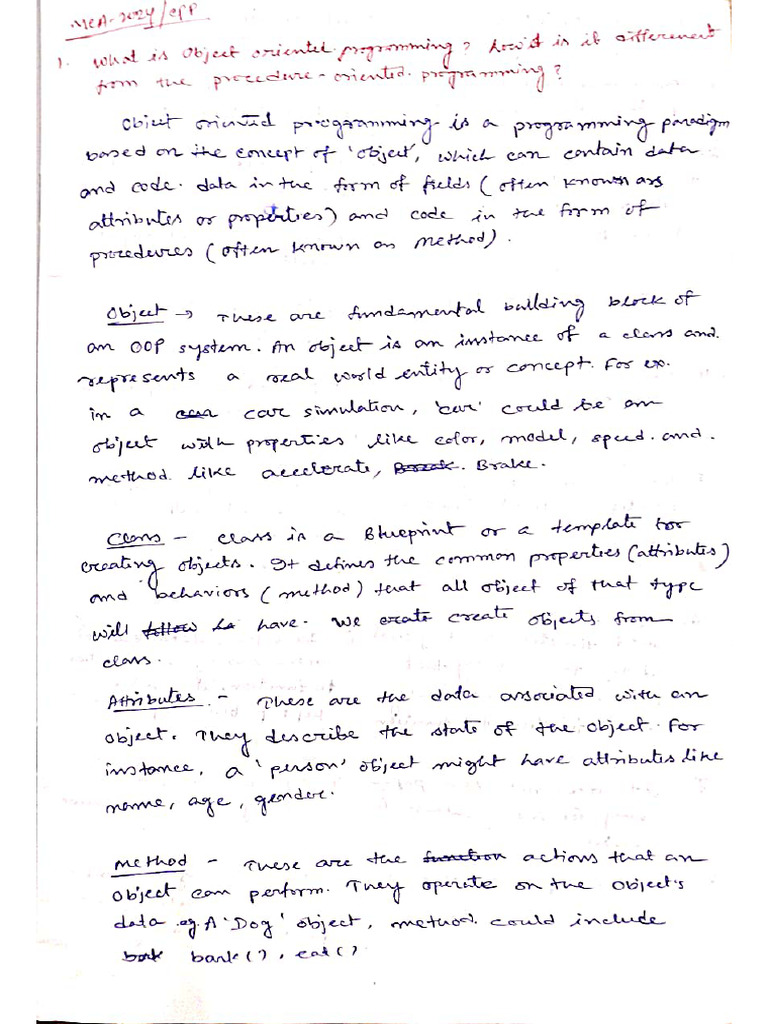 MCA-2024/CPP
1. What is Object oriented programming? how it is it different
from the procedure-oriented programming?
Object oriented programming is a programming paradigm
based on the concept of 'object', which can contain data
and code. data in the form of fields (often known as
attributes or properties) and code in the form of
procedures (often known as method).
Object → These are fundamental building block of
an OOP system. An object is an instance of a class and.
represents a real world entity or concept. For ex.
in a car simulation, 'car' could be an
object with properties like color, model, speed. and.
method like accelerate, Break. Brake.
Class - class is a Blueprint or a template for
creating objects. It defines the common properties (attributes)
and behaviors (method) that all object of that type
will follow ha have. We create create objects from
class.
Attributes - These are the data associated with an
object. They describe the state of the object. For
instance, a 'person' object might have attributes like
name, age, gender.
Method - These are the function actions that an
object can perform. They operate on the object's
data eg. A 'Dog' object, method could include
bark bark(), eat()